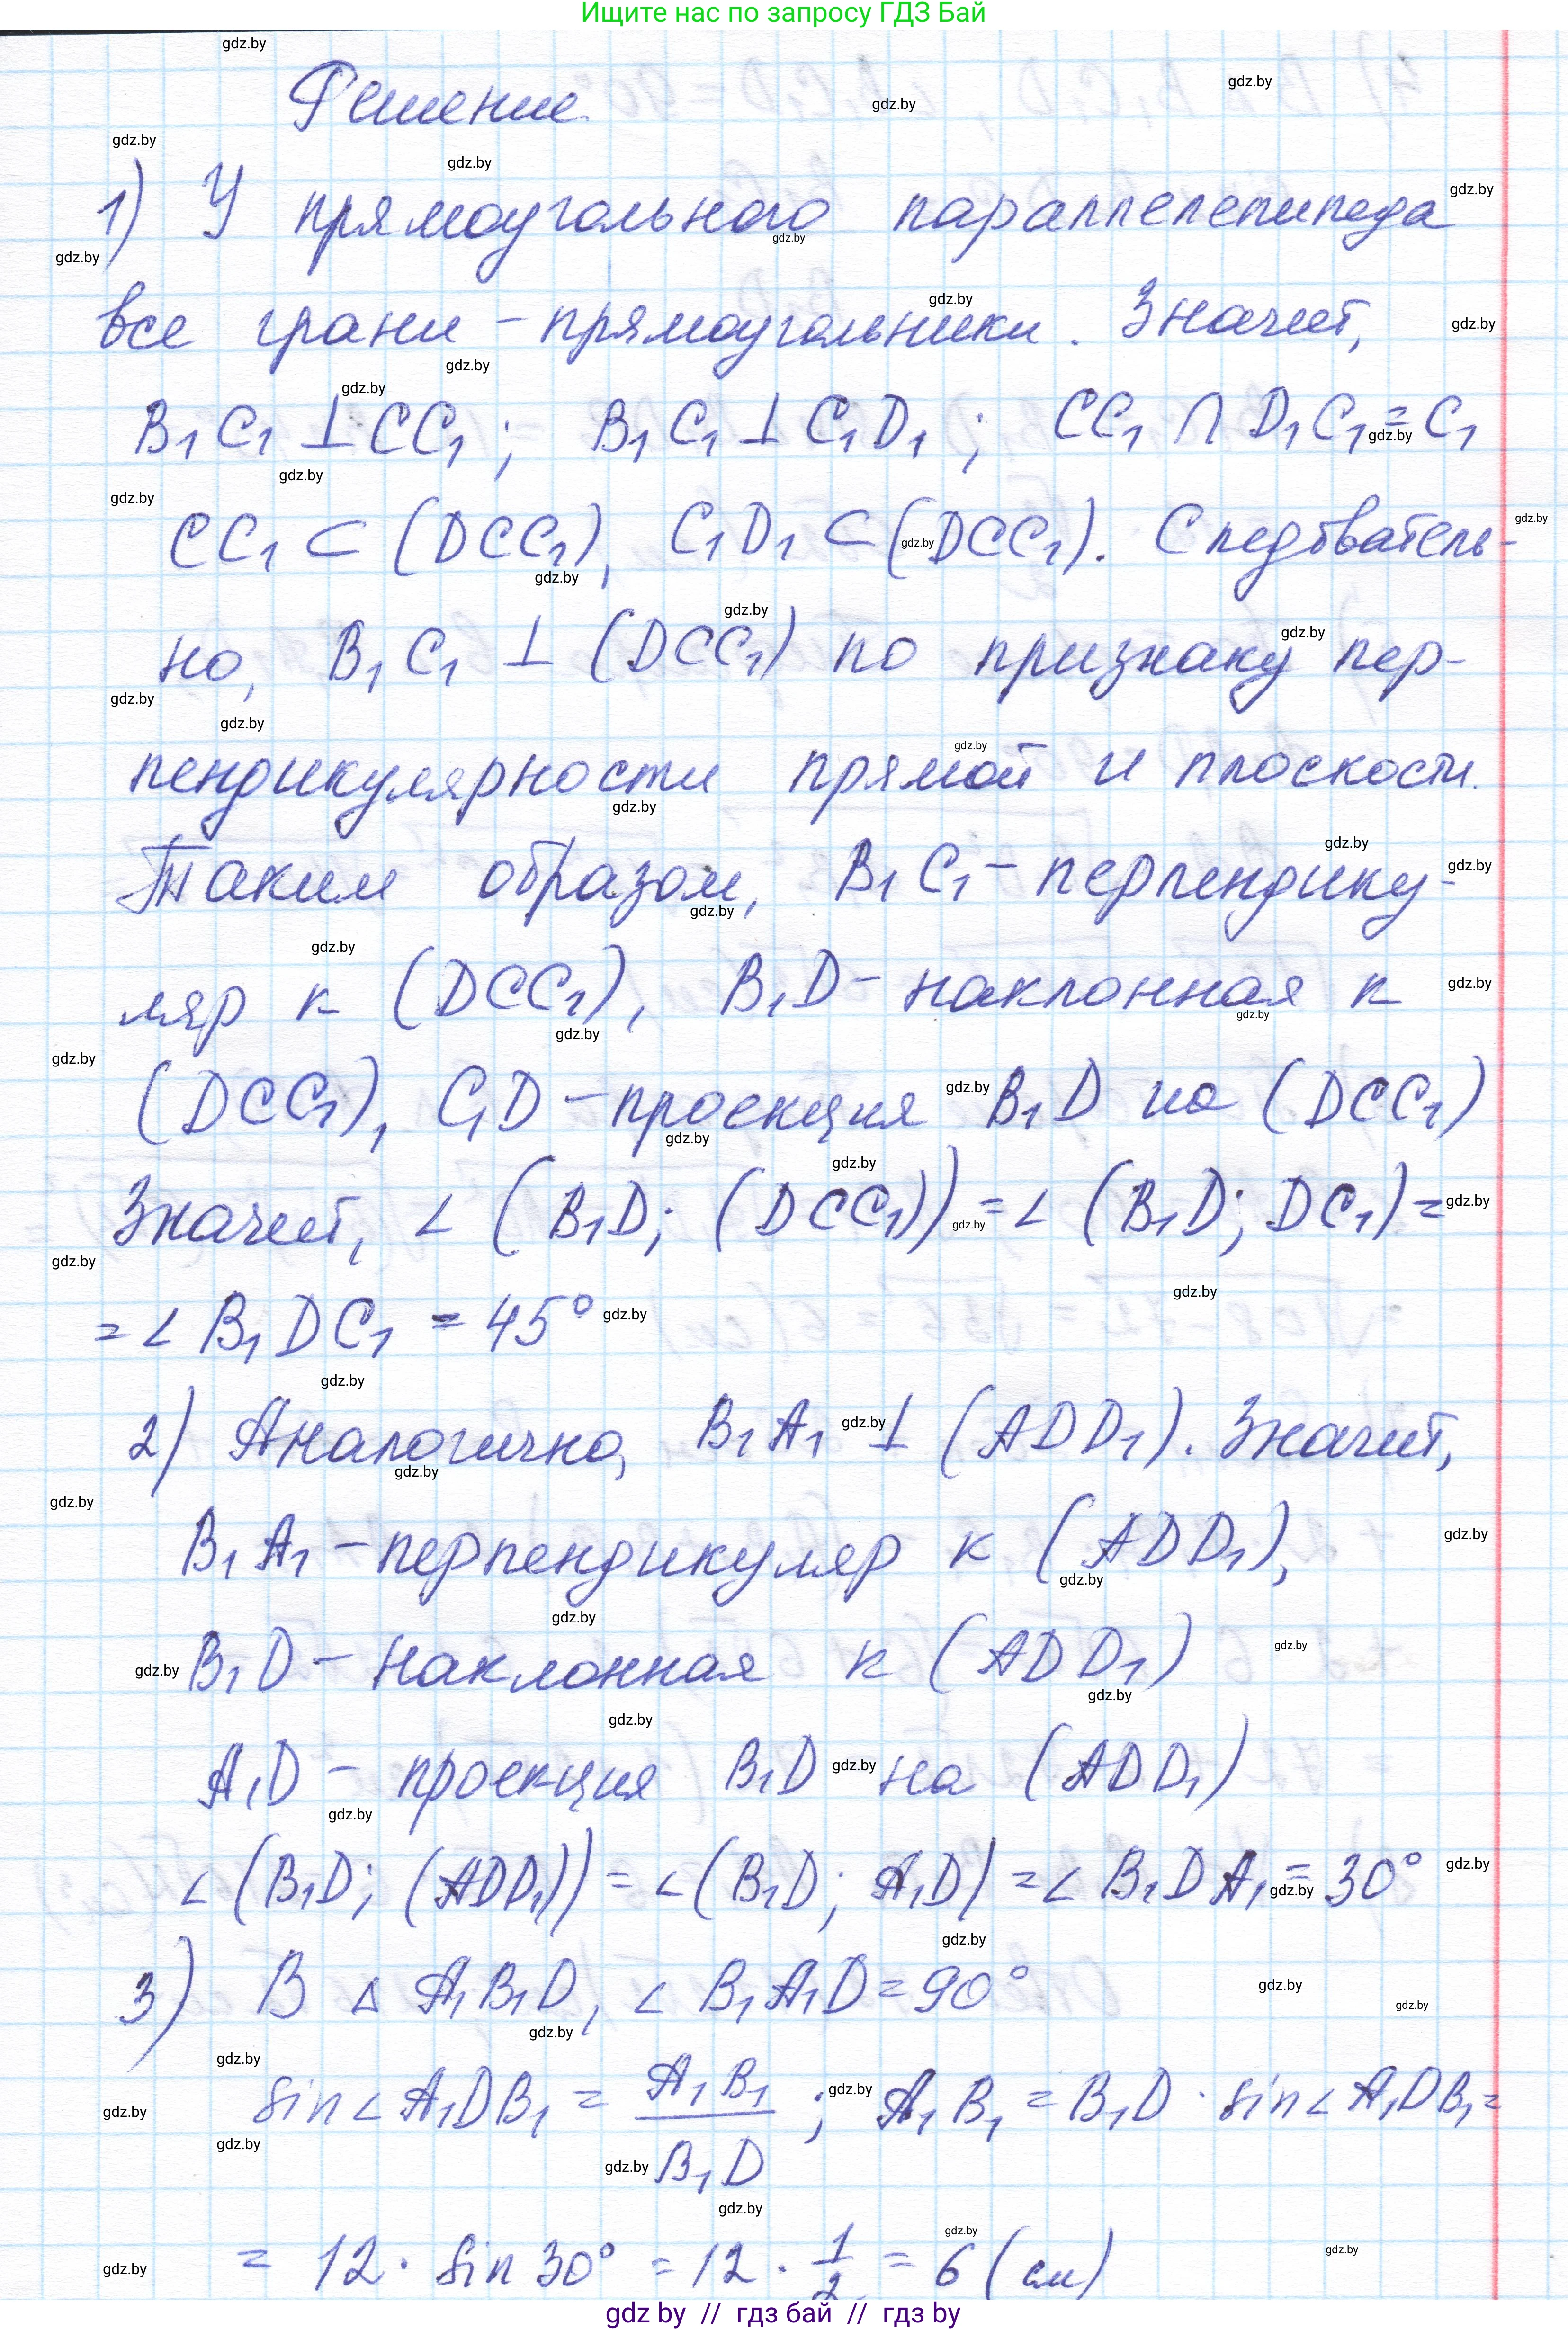 Ищите нас по запросу ГДЗ Бай
Решение
1) У прямоугольного параллелепипеда
все грани – прямоугольники. Значит,
B₁C₁ ⊥ CC₁; B₁C₁ ⊥ C₁D₁; CC₁ ∩ D₁C₁ = C₁
CC₁ ⊂ (DCC₁), C₁D₁ ⊂ (DCC₁). Следователь-
но, B₁C₁ ⊥ (DCC₁) по признаку пер-
пендикулярности прямой и плоскости.
Таким образом, B₁C₁ – перпендику-
ляр к (DCC₁), B₁D – наклонная к
(DCC₁), C₁D – проекция B₁D на (DCC₁)
Значит, ∠ (B₁D; (DCC₁)) = ∠ (B₁D; DC₁) =
= ∠ B₁DC₁ = 45°
2) Аналогично, B₁A₁ ⊥ (ADD₁). Значит,
B₁A₁ – перпендикуляр к (ADD₁),
B₁D – наклонная к (ADD₁)
A₁D – проекция B₁D на (ADD₁)
∠ (B₁D; (ADD₁)) = ∠ (B₁D; A₁D) = ∠ B₁DA₁ = 30°
3) В △ A₁B₁D, ∠ B₁A₁D = 90°
sin∠A₁DB₁ = A₁B₁ / B₁D ; A₁B₁ = B₁D · sin∠A₁DB₁ =
= 12 · sin 30° = 12 · 1/2 = 6 (см)
gdz by // гдз бай // гдз by